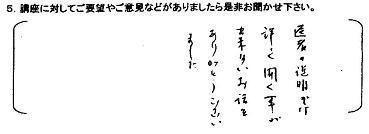 5. 講座に対してご要望やご意見などがありましたら是非お聞かせ下さい。
医者の説明では
詳しく聞く事が
出来ないお話を
ありがとうござい
ました